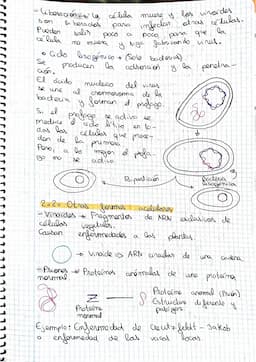 -Liberación: La célula muere y los viroides
son liberados para infectar otras células.
Pueden salir poco a poco para que la
célula no muera y siga fabricando virus.
• Ciclo lisogénico • (Solo bacteria)
Se producen la adsorción y la penetra-
ción.
El ácido nucleico del virus
se une al cromosoma de la
bacteria y forman el profago.
Si el profago se activa se
produce el ciclo lítico en to-
das las células que proce-
dan de la primera.
Pero, a lo mejor el profa-
go no se activa.
Bipartición
Bacteria
lisogénica
2.2. Otras formas acelulares
-Viroides → Fragmentos de ARN exclusivos de
células vegetales.
Causan enfermedades a las plantas.
→ viroide → ARN circular de una cadena.
-Priones → Proteínas anómalas de una proteína
normal
Proteína
normal
Proteína anormal (Prión)
Estructura diferente y
patógena.
Ejemplo: Enfermedad de Creutzfeldt-Jakob
o enfermedad de las vacas locas.